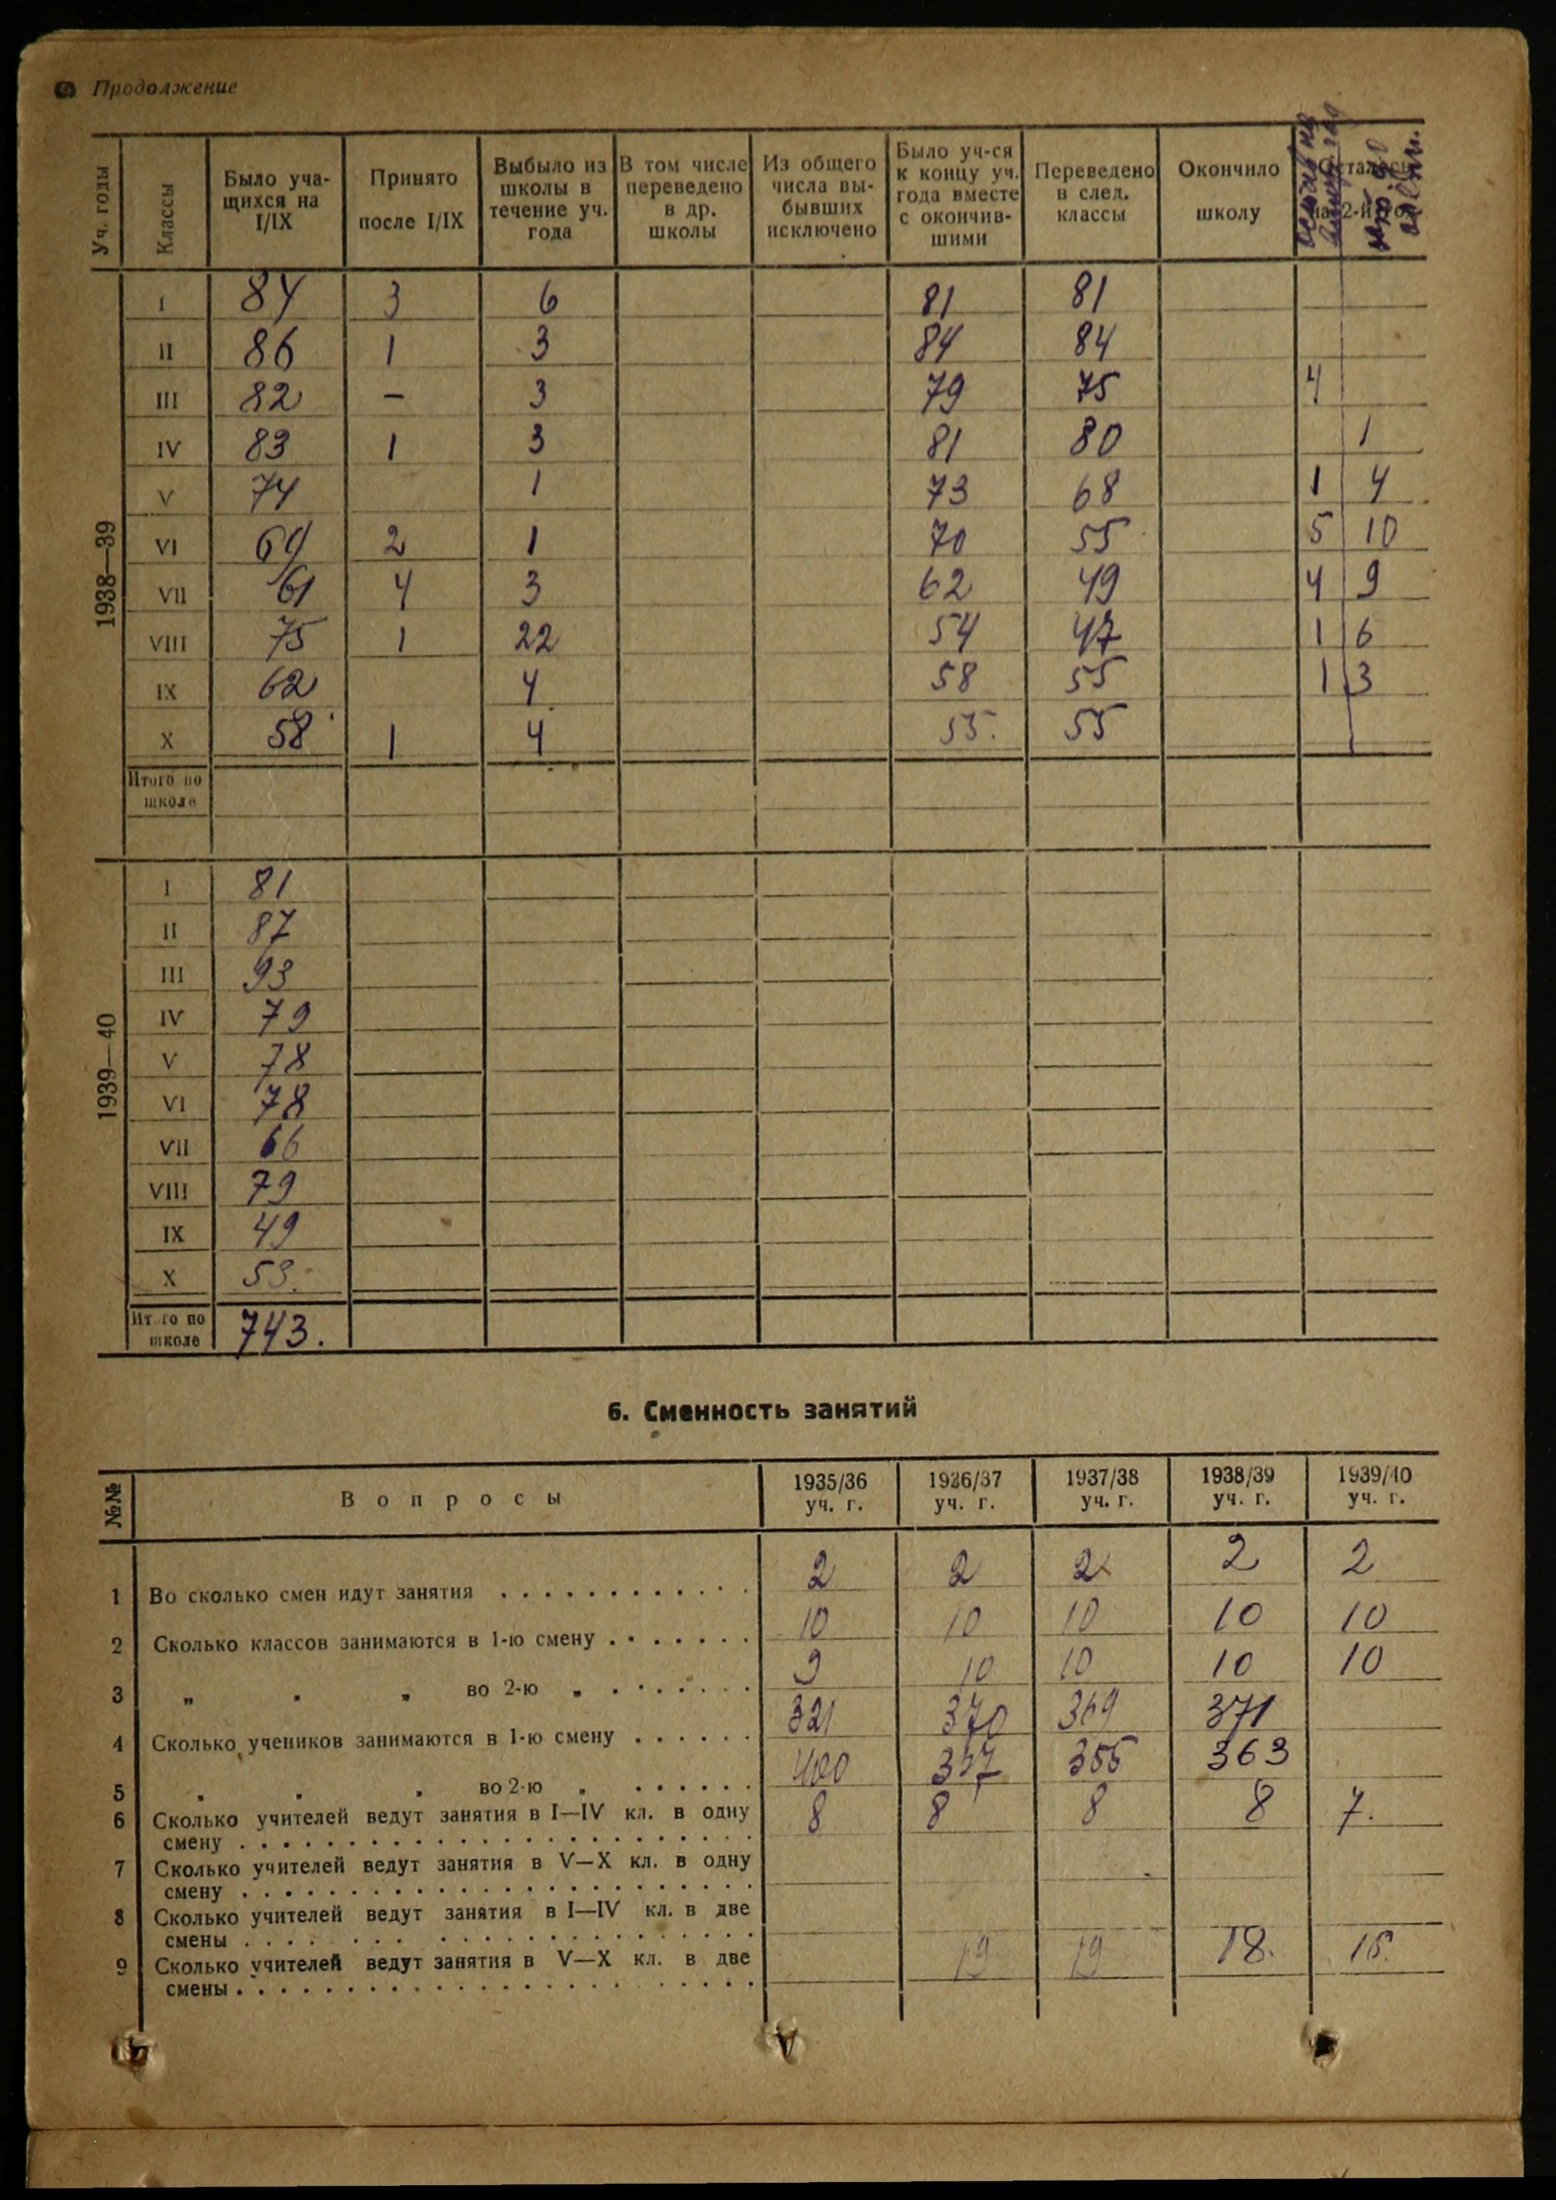 Продолжение
Уч. годы | Классы | Было учащихся на I/IX | Принято после I/IX | Выбыло из школы в течение уч. года | В том числе переведено в др. школы | Из общего числа выбывших исключено | Было уч-ся к концу уч. года вместе с окончившими | Переведено в след. классы | Окончило школу
1938—39
I 84 3 6 81 81
II 86 1 3 84 84
III 82 — 3 79 75 4
IV 83 1 3 81 80 1
V 74 1 73 68 1 4
VI 69 2 1 70 55 5 10
VII 61 4 3 62 49 4 9
VIII 75 1 22 54 47 1 6
IX 62 4 58 55 1 3
X 58 1 4 55. 55
Итого по школе
1939—40
I 81
II 87
III 93
IV 79
V 78
VI 78
VII 66
VIII 79
IX 49
X 53.
Ит го по школе 743.
6. Сменность занятий
№№ | Вопросы | 1935/36 уч. г. | 1936/37 уч. г. | 1937/38 уч. г. | 1938/39 уч. г. | 1939/40 уч. г.
1 Во сколько смен идут занятия . . . . . . . . . . . . 2 2 2 2 2
2 Сколько классов занимаются в 1-ю смену . . . . . . . 10 10 10 10 10
3 „ „ „ во 2-ю „ . . . . . . . 9 10 10 10 10
4 Сколько учеников занимаются в 1-ю смену . . . . . . 321 370 369 371
5 „ „ „ во 2-ю „ . . . . . . 400 355 363
6 Сколько учителей ведут занятия в I—IV кл. в одну
смену . . . . . . . . . . . . . . . . . . . . . 8 8 8 8 7.
7 Сколько учителей ведут занятия в V—X кл. в одну
смену . . . . . . . . . . . . . . . . . . . . .
8 Сколько учителей ведут занятия в I—IV кл. в две
смены . . . . . . . . . . . . . . . . . . . . .
9 Сколько учителей ведут занятия в V—X кл. в две
смены . . . . . . . . . . . . . . . . . . . . . 19 19 18. 16.